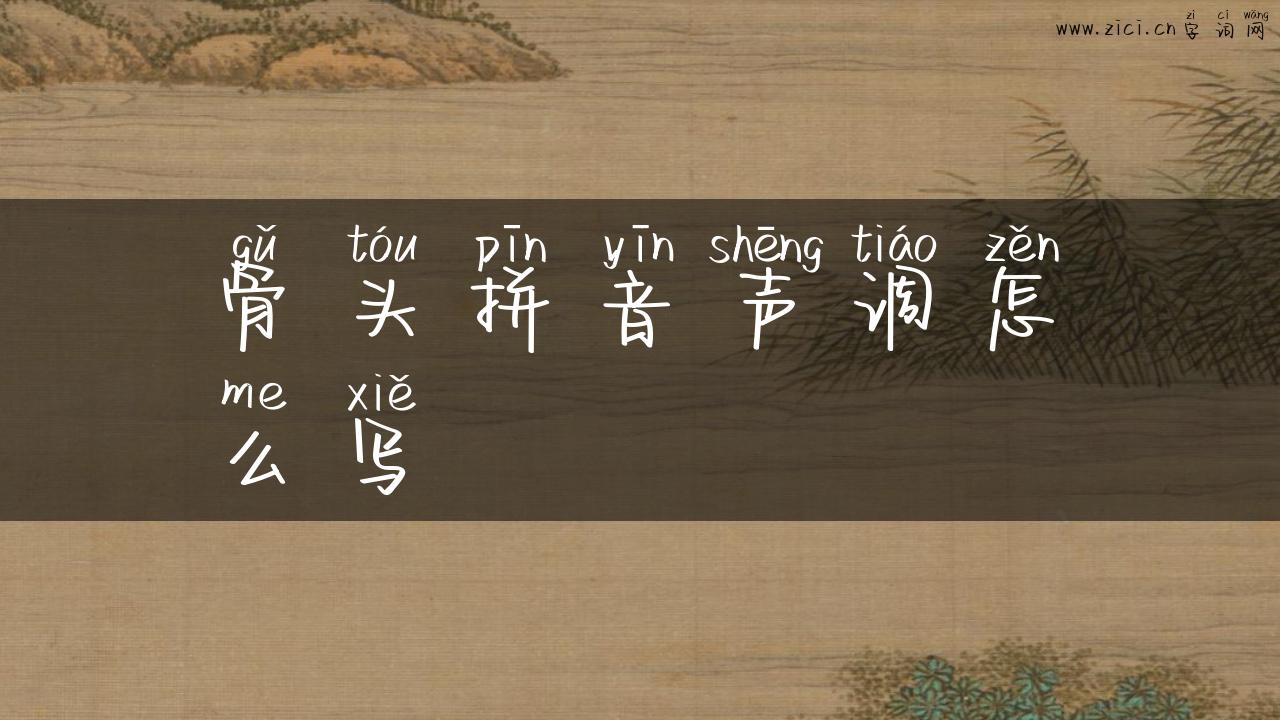 zì cí wǎng
www.zici.cn 字词网
gǔ tóu pīn yīn shēng tiáo zěn
骨头拼音声调怎
me xiě
么写